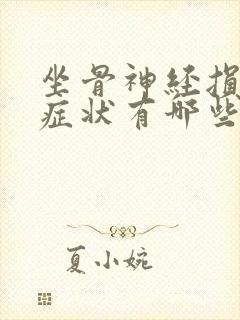 坐骨神经损
症状有哪些
夏小婉